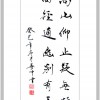 高山仰止疑無路
曲徑通幽別有天
癸巳年